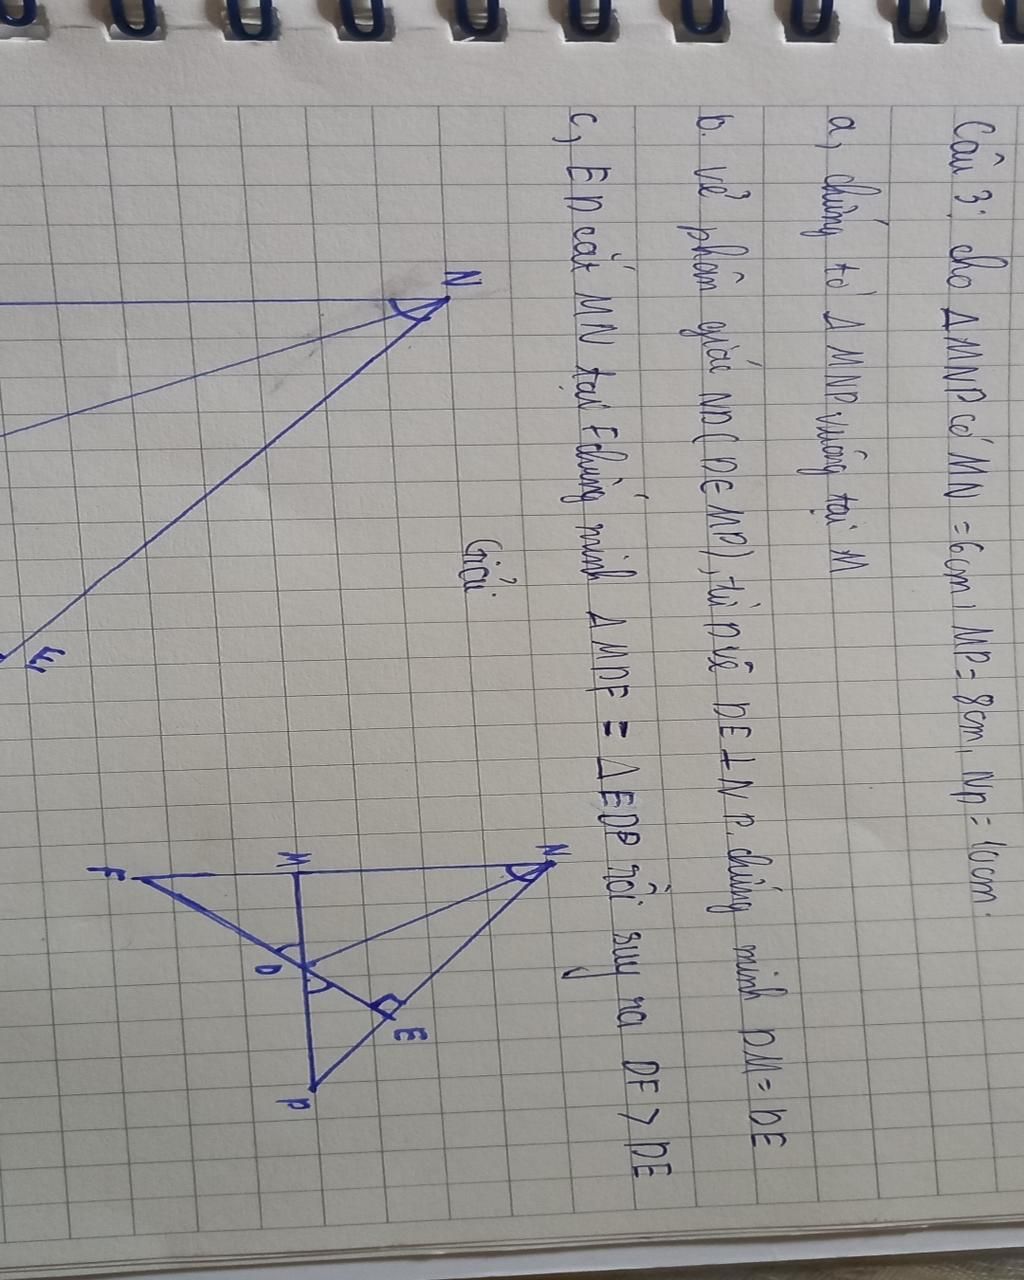 Câu 3: cho ΔMNP có MN = 6cm, MP = 8cm, NP = 10cm.
a, chứng tỏ Δ MNP vuông tại M
b. vẽ phân giác ND (D ∈ MP), từ D vẽ DE ⊥ NP. chứng minh DM = DE
c, ED cắt MN tại F chứng minh Δ MDF = Δ EDP rồi suy ra DF > DE
Giải
N
E
N
M
F
D
E
P